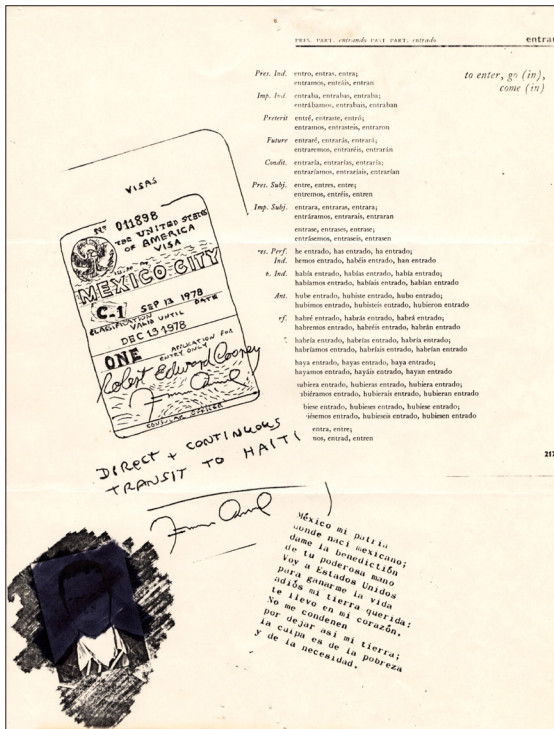 PRES. PART. entrando PAST PART. entrado
entrar
to enter, go (in),
come (in)
Pres. Ind. entro, entras, entra;
entramos, entráis, entran
Imp. Ind. entraba, entrabas, entraba;
entrábamos, entrabais, entraban
Preterit entré, entraste, entró;
entramos, entrasteis, entraron
Future entraré, entrarás, entrará;
entraremos, entraréis, entrarán
Condit. entraría, entrarías, entraría;
entraríamos, entraríais, entrarían
Pres. Subj. entre, entres, entre;
entremos, entréis, entren
Imp. Subj. entrara, entraras, entrara;
entráramos, entrarais, entraran
entrase, entrases, entrase;
entrásemos, entraseis, entrasen
res. Perf. he entrado, has entrado, ha entrado;
Ind. hemos entrado, habéis entrado, han entrado
p. Ind. había entrado, habías entrado, había entrado;
habíamos entrado, habíais entrado, habían entrado
Ant. hube entrado, hubiste entrado, hubo entrado;
hubimos entrado, hubisteis entrado, hubieron entrado
rf. habré entrado, habrás entrado, habrá entrado;
habremos entrado, habréis entrado, habrán entrado
habría entrado, habrías entrado, habría entrado;
habríamos entrado, habríais entrado, habrían entrado
haya entrado, hayas entrado, haya entrado;
hayamos entrado, hayáis entrado, hayan entrado
ubiera entrado, hubieras entrado, hubiera entrado;
biéramos entrado, hubierais entrado, hubieran entrado
biese entrado, hubieses entrado, hubiese entrado;
iésemos entrado, hubieseis entrado, hubiesen entrado
entra, entre;
mos, entrad, entren
217
VISAS
Nº 011898
THE UNITED STATES
OF AMERICA
VISA
MEXICO CITY
C.1 SEP 13 1978
CLASSIFICATION DATE
VALID UNTIL
DEC 13 1978
ONE APPLICATION FOR
ENTRY ONLY
Robert Edward Cooney
CONSULAR OFFICER
DIRECT + CONTINUOUS
TRANSIT TO HAITI
México mi patria
donde nací mexicano;
dame la benedictión
de tu poderosa mano
Voy a Estados Unidos
para ganarme la vida
adiós mi tierra querida;
te llevo en mi corazón.
No me condenen
por dejar así mi tierra;
la culpa es de la pobreza
y de la necesidad.